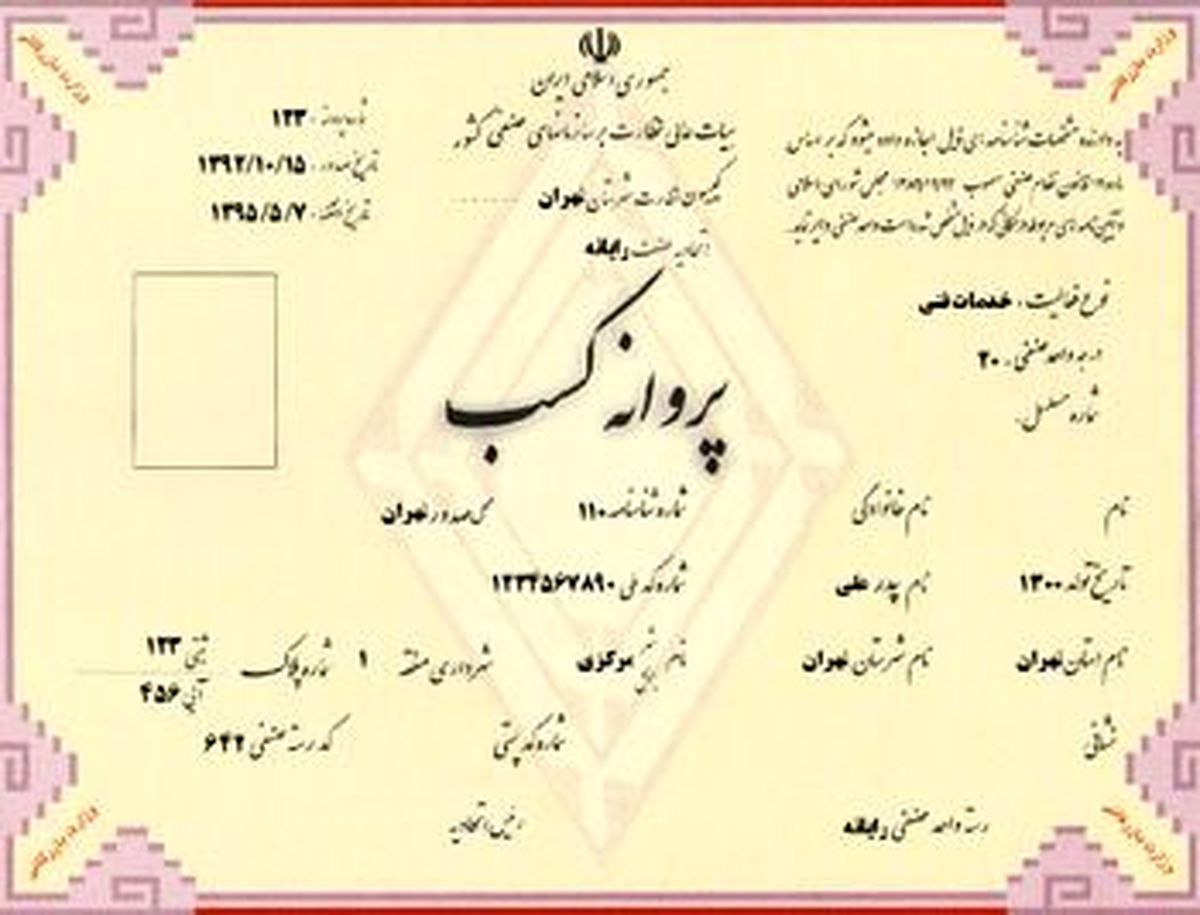 جمهوری اسلامی ایران
هیات عالی نظارت بر سازمانهای صنفی کشور
کمیسیون نظارت شهرستان تهران
اتحادیه صنف رایانه
شماره پروانه : ۱۲۳
تاریخ صدور : ۱۳۹۲/۱۰/۱۵
تاریخ انقضاء : ۱۳۹۵/۵/۷
به دارنده مشخصات شناسنامه ای ذیل اجازه داده میشود که بر اساس
قانون نظام صنفی مصوب مجلس شورای اسلامی
و آیین نامه های مربوطه در مکانی که در ذیل مشخص شده است واحد صنفی دایر نماید.
نوع فعالیت : خدمات فنی
درجه واحد صنفی : ۲۰
شماره مسلسل :
پروانه کسب
نام نام خانوادگی شماره شناسنامه ۱۱۰ محل صدور تهران
تاریخ تولد ۱۳۰۰ نام پدر علی شماره کد ملی ۱۲۳۴۵۶۷۸۹۰
نام استان تهران نام شهرستان تهران نام شهر بخش مرکزی شهرداری منطقه ۱ شماره پلاک ثبتی ۱۲۳ آبی ۴۵۶
نشانی شماره کد پستی کد رسته صنفی ۶۴۲
رسته واحد صنفی رایانه رئیس اتحادیه
وزارت بازرگانی
وزارت بازرگانی
وزارت بازرگانی
وزارت بازرگانی